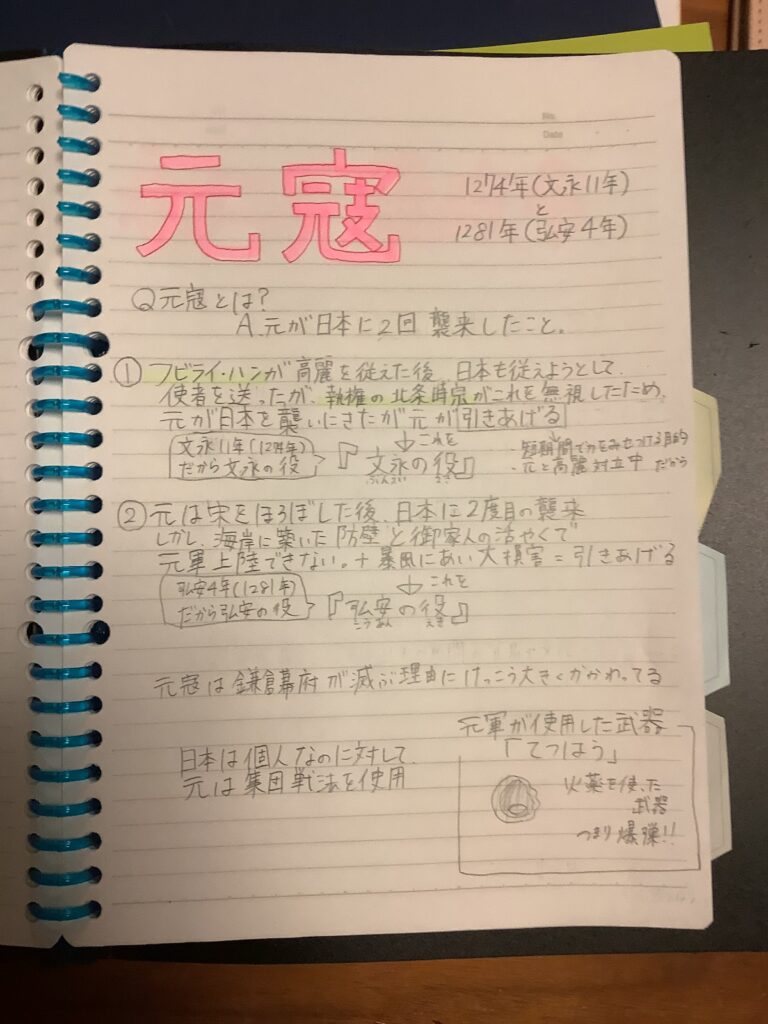 No.
Date
元寇
1274年(文永11年)
と
1281年(弘安4年)
Q元寇とは?
A.元が日本に2回 襲来したこと。
① フビライ・ハンが高麗を従えた後、日本も従えようとして、
使者を送ったが、執権の北条時宗がこれを無視したため、
元が日本を襲いにきたが元が引きあげる
文永11年(1274年)
だから文永の役
これを
『文永の役』
ぶんえい えき
・短期間で力をみせつける目的
・元と高麗対立中 だから
② 元は宋をほろぼした後、日本に2度目の襲来
しかし、海岸に築いた防壁と御家人の活やくで
元軍上陸できない。+暴風にあい大損害=引きあげる
弘安4年(1281年)
だから弘安の役
これを
『弘安の役』
こうあん えき
元寇は鎌倉幕府が滅ぶ理由にけっこう大きくかかわってる
日本は個人なのに対して、
元は集団戦法を使用
元軍が使用した武器
「てつはう」
火薬を使った
武器
つまり爆弾!!